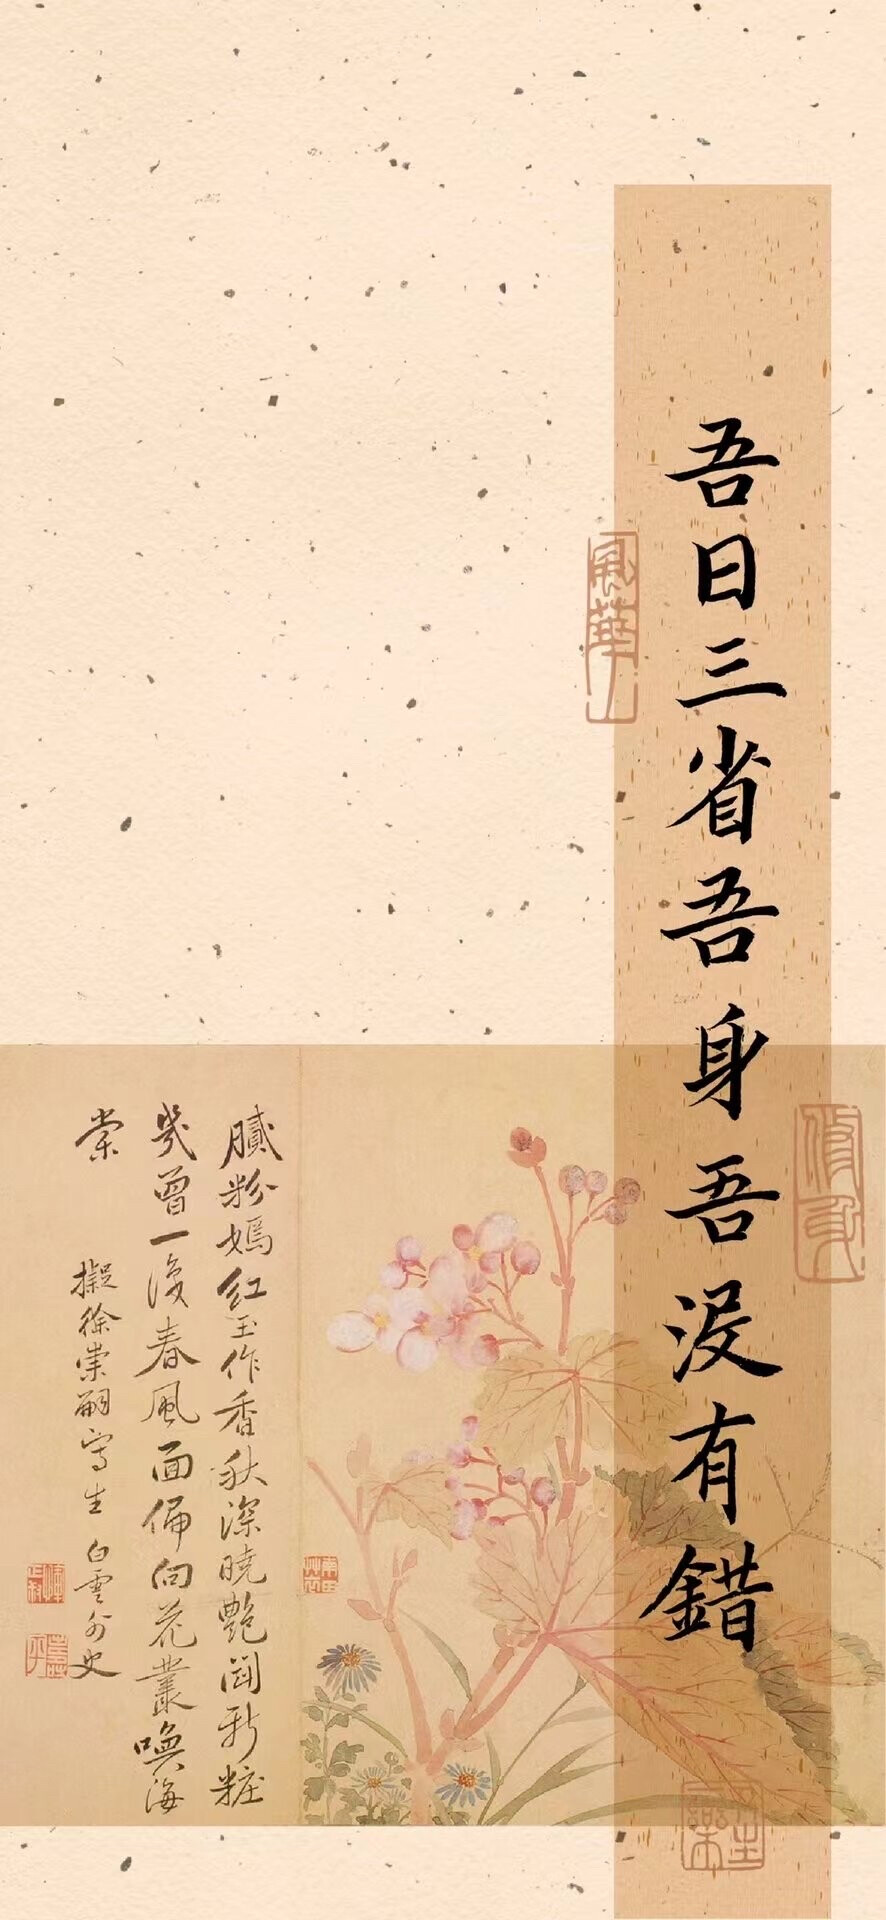 吾日三省吾身吾没有錯
風華
修身
膩粉嫣紅玉作香秋深曉艷鬥新粧
幾曾一溲春風面偏向花叢喚海
棠
擬徐崇嗣寫生 白雲外史